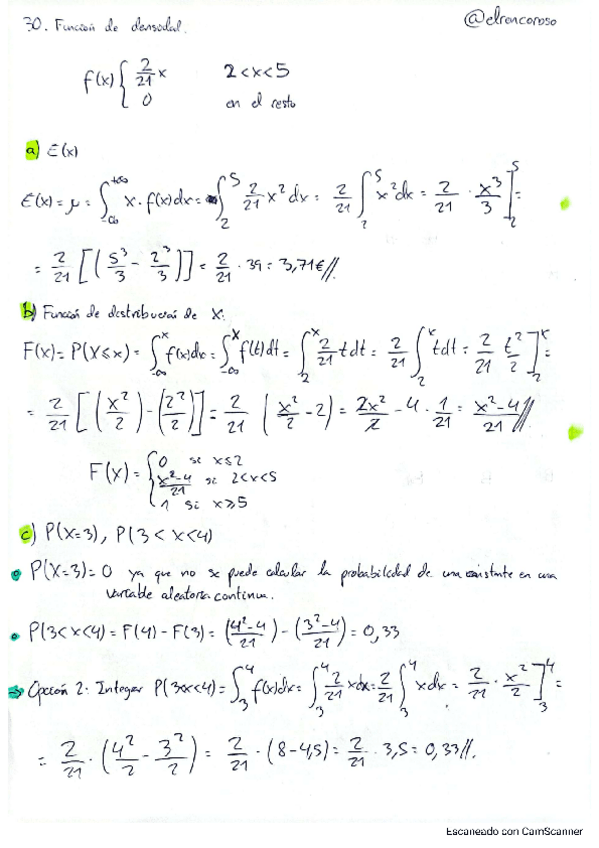 @elrencoroso
30. Función de densidad.
f(x) { 2/21 x   2<x<5
0   en el resto
a) E(x)
E(x) = μ = ∫_{-∞}^{+∞} x · f(x)dx = ∫_2^5 2/21 x² dx = 2/21 ∫_2^5 x² dx = 2/21 · x³/3 ]_2^5 =
= 2/21 [(5³/3 - 2³/3)] = 2/21 · 39 = 3,71€//.
b) Función de distribución de X.
F(x) = P(X≤x) = ∫_{-∞}^x f(x)dx = ∫_{-∞}^x f(t)dt = ∫_2^x 2/21 t dt = 2/21 ∫_2^x t dt = 2/21 t²/2 ]_2^x =
= 2/21 [(x²/2) - (2²/2)] = 2/21 (x²/2 - 2) = 2x²/2 - 4 · 1/21 = x²-4/21 //
F(x) = { 0 si x≤2
x²-4/21 si 2<x<5
1 si x≥5
c) P(X=3), P(3<x<4)
P(X=3) = 0 ya que no se puede calcular la probabilidad de una constante en una
variable aleatoria continua.
P(3<x<4) = F(4) - F(3) = (4²-4/21) - (3²-4/21) = 0,33
⇒ Opción 2. Integrar P(3<x<4) = ∫_3^4 f(x)dx = ∫_3^4 2/21 x dx = 2/21 ∫_3^4 x dx = 2/21 · x²/2 ]_3^4 =
= 2/21 · (4²/2 - 3²/2) = 2/21 · (8-4,5) = 2/21 · 3,5 = 0,33//.
Escaneado con CamScanner